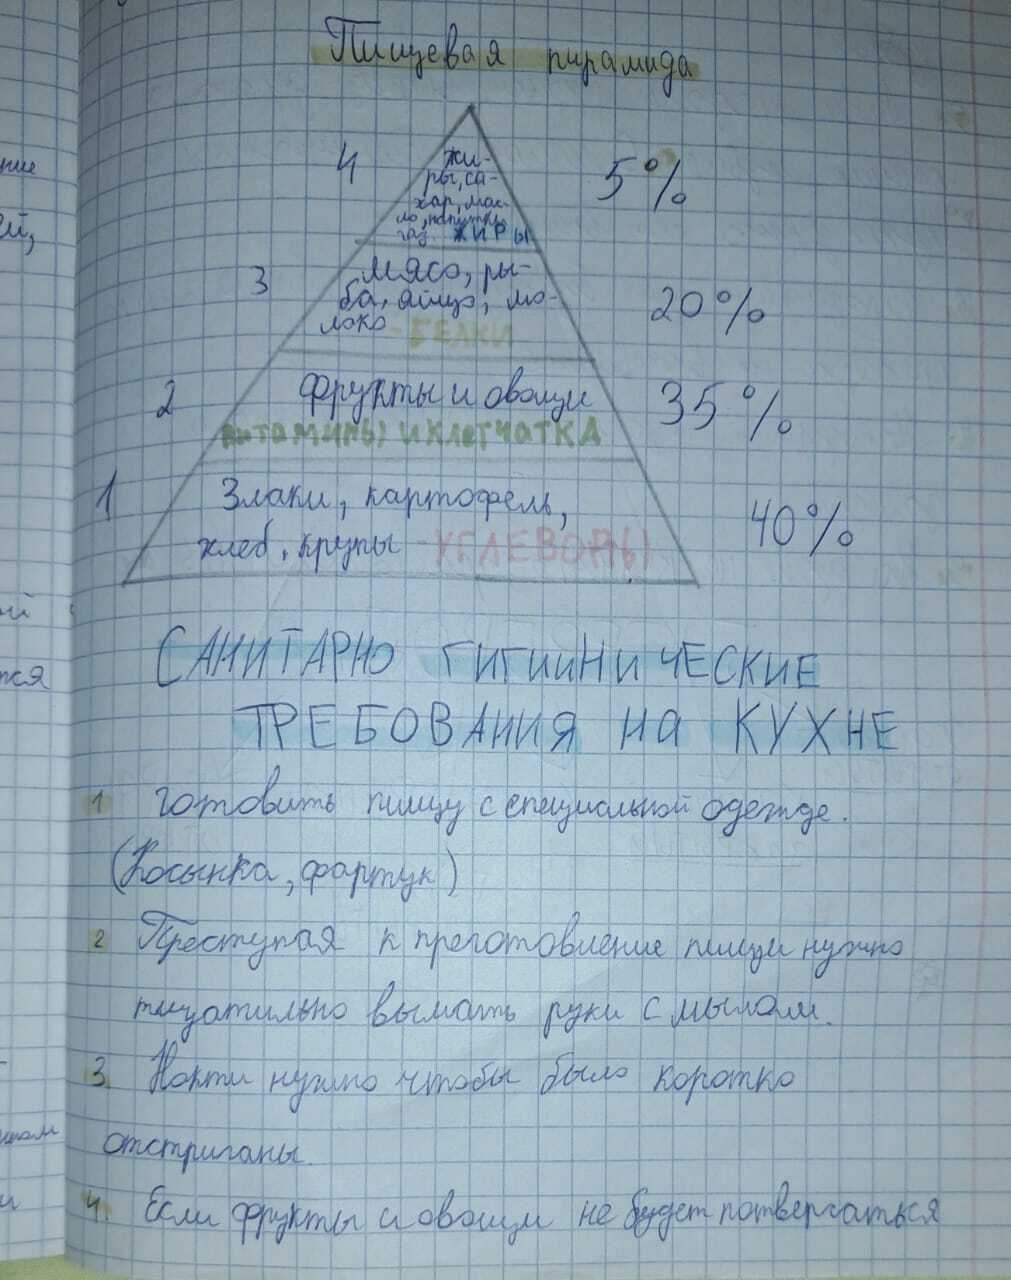 Пищевая пирамида
4 жи- 5%
ры, са-
хар, мас-
ло, напитки
газ. ЖИРЫ
3 мясо, ры-
ба, яйцо, мо- 20%
локо - БЕЛКИ
2 фрукты и овощи 35%
витамины и клетчатка
1 Злаки, картофель, 40%
хлеб, крупы - УГЛЕВОДЫ
САНИТАРНО ГИГИИНИЧЕСКИЕ
ТРЕБОВАНИЯ НА КУХНЕ
1 готовить пищу с специальной одежде.
(Косынка, фартук)
2 Преступая к преготовление пищи нужно
тщатильно вымать руки с мылам.
3. Нокти нужно чтобы было коротко
отстриганы.
4. Если фрукты и овощи не будет потвергаться